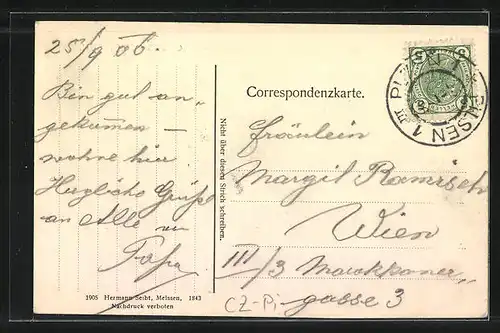 25/9 06.
Bin gut an-
gekommen —
wohne hier.
Herzliche Grüße
an Alle von
Papa
1905 Hermann Seibt, Meissen, 1843
Nachdruck verboten
Nicht über diesen Strich schreiben.
PLZEŇ 1 PILSEN 1
5
Correspondenzkarte.
Fräulein
Margit
Wien
III/3 Marokkaner-
gasse 3
CZ-Pi